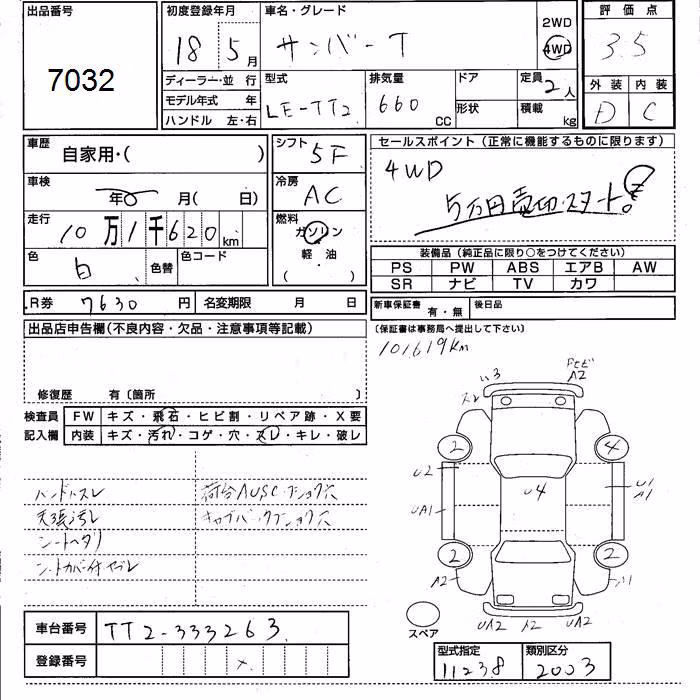 出品番号
7032
初度登録年月
18 5月
ディーラー・並行
モデル年式 年
ハンドル 左・右
車名・グレード
サンバーT
2WD
4WD
型式
LE-TT2
排気量
660
CC
ドア
形状
定員
2人
積載
kg
評価点
3.5
外装 内装
D C
車歴
自家用・( )
車検
年 月( 日)
走行
10万1千620km
色
白
色替
色コード
シフト
5F
冷房
AC
燃料
ガソリン
軽油
( )
セールスポイント(正常に機能するものに限ります)
4WD
5万円売切スタート!
装備品(純正品に限り○をつけてください)
PS PW ABS エアB AW
SR ナビ TV カワ
R券 7630円 名変期限 月 日
新車保証書 有・無 後日品
(保証書は事務局へ提出して下さい)
101,619km
出品店申告欄(不良内容・欠品・注意事項等記載)
修復歴 有〔箇所 〕
検査員
記入欄
FW キズ・飛石・ヒビ割・リペア跡・X要
内装 キズ・汚れ・コゲ・穴・スレ・キレ・破レ
ハンドルスレ
天張汚レ
シートヘタリ
A2
2
4
U2
U4
U1
A1
UA1
2
2
A2
A1
UA2 A2 UA2
スペア
車台番号 TT2-333263
登録番号
型式指定 類別区分
11238 2003